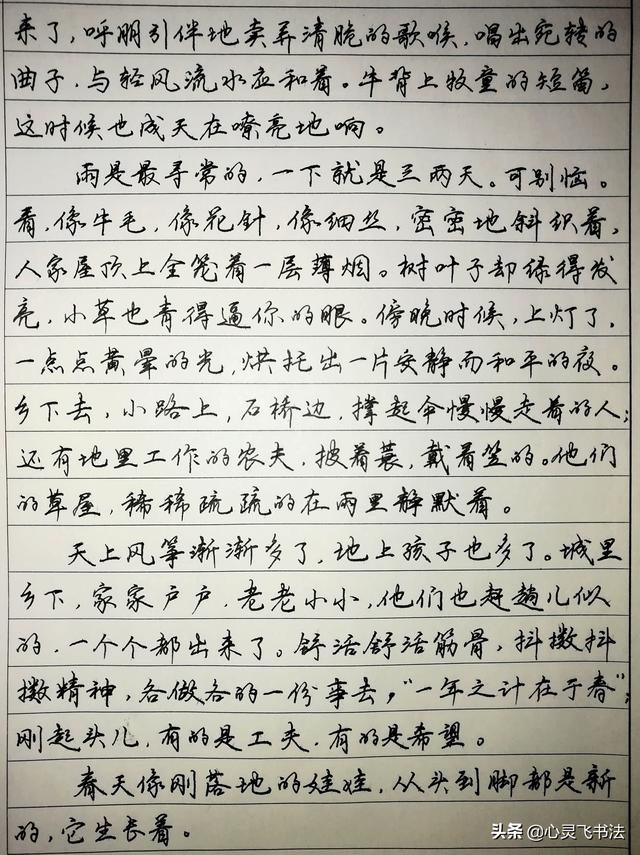 来了，呼朋引伴地卖弄清脆的歌喉，唱出宛转的
曲子，与轻风流水应和着。牛背上牧童的短笛，
这时候也成天在嘹亮地响。
雨是最寻常的，一下就是三两天。可别恼。
看，像牛毛，像花针，像细丝，密密地斜织着，
人家屋顶上全笼着一层薄烟。树叶子却绿得发
亮，小草也青得逼你的眼。傍晚时候，上灯了，
一点点黄晕的光，烘托出一片安静而和平的夜。
乡下去，小路上，石桥边，撑起伞慢慢走着的人；
还有地里工作的农夫，披着蓑，戴着笠的。他们
的草屋，稀稀疏疏的在雨里静默着。
天上风筝渐渐多了，地上孩子也多了。城里
乡下，家家户户，老老小小，他们也赶趟儿似
的，一个个都出来了。舒活舒活筋骨，抖擞抖
擞精神，各做各的一份事去，“一年之计在于春”；
刚起头儿，有的是工夫，有的是希望。
春天像刚落地的娃娃，从头到脚都是新
的，它生长着。
头条 @心灵飞书法